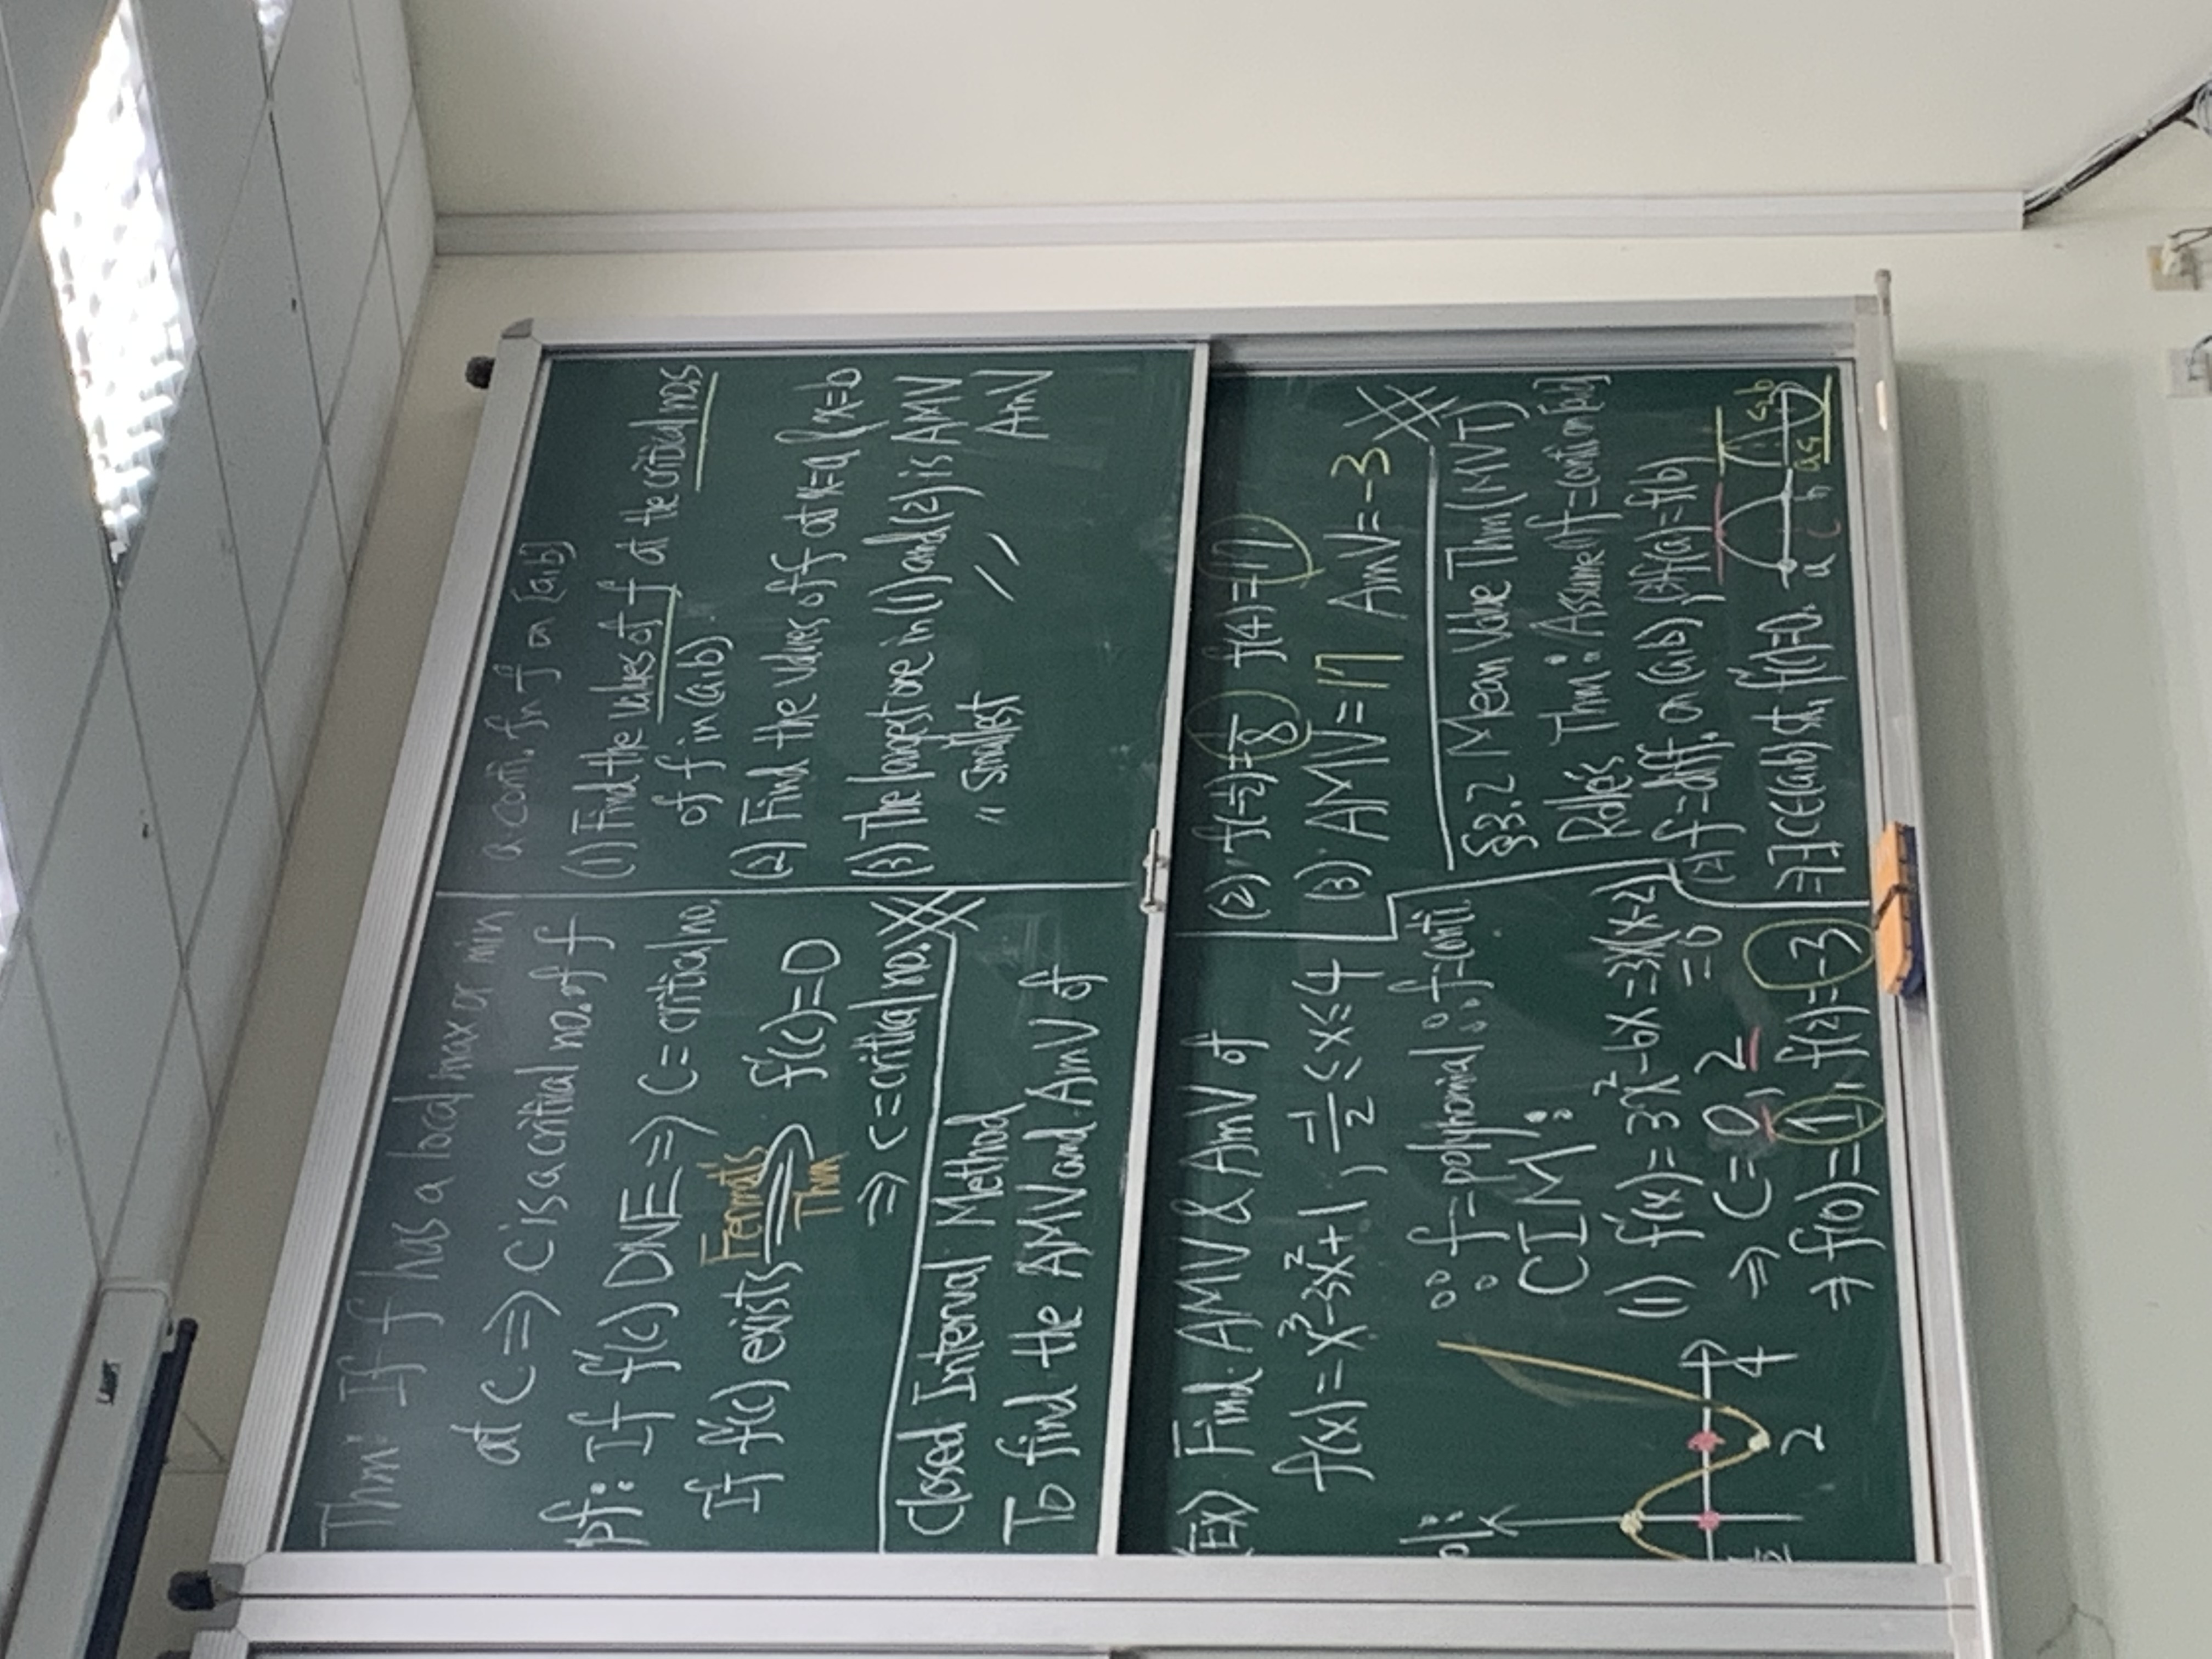 Thm: If f has a local max or min
at c ⇒ c is a critical no. of f
pf: If f'(c) DNE ⇒ c = critical no.
If f'(c) exists ⇒ f'(c)=0
Fermat's
Thm
⇒ c = critical no.
Closed Interval Method
To find the AMV and AmV of
a conti. fn f on [a,b]
(1) Find the values of f at the critical nos
of f in (a,b).
(2) Find the values of f at x=a & x=b
(3) The largest one in (1) and (2) is AMV
〃 smallest 〃 AmV
(Ex) Find AMV & AmV of
f(x) = x³-3x²+1, -1/2 ≤ x ≤ 4
ol:
∵ f = polynomial ∴ f = conti.
CIM:
(1) f'(x) = 3x²-6x = 3x(x-2)
= 0
⇒ c = 0, 2
⇒ f(0) = 1, f(2) = -3
2
4
(2) f(-1/2) = 1/8 f(4) = 17
(3) AMV = 17 AmV = -3
§3.2 Mean Value Thm (MVT)
Rolle's Thm: Assume (1) f = conti on [a,b]
(2) f = diff. on (a,b), (3) f(a) = f(b)
⇒ ∃ c ∈ (a,b) st. f'(c)=0.
a c b
a c₁ c₂ b